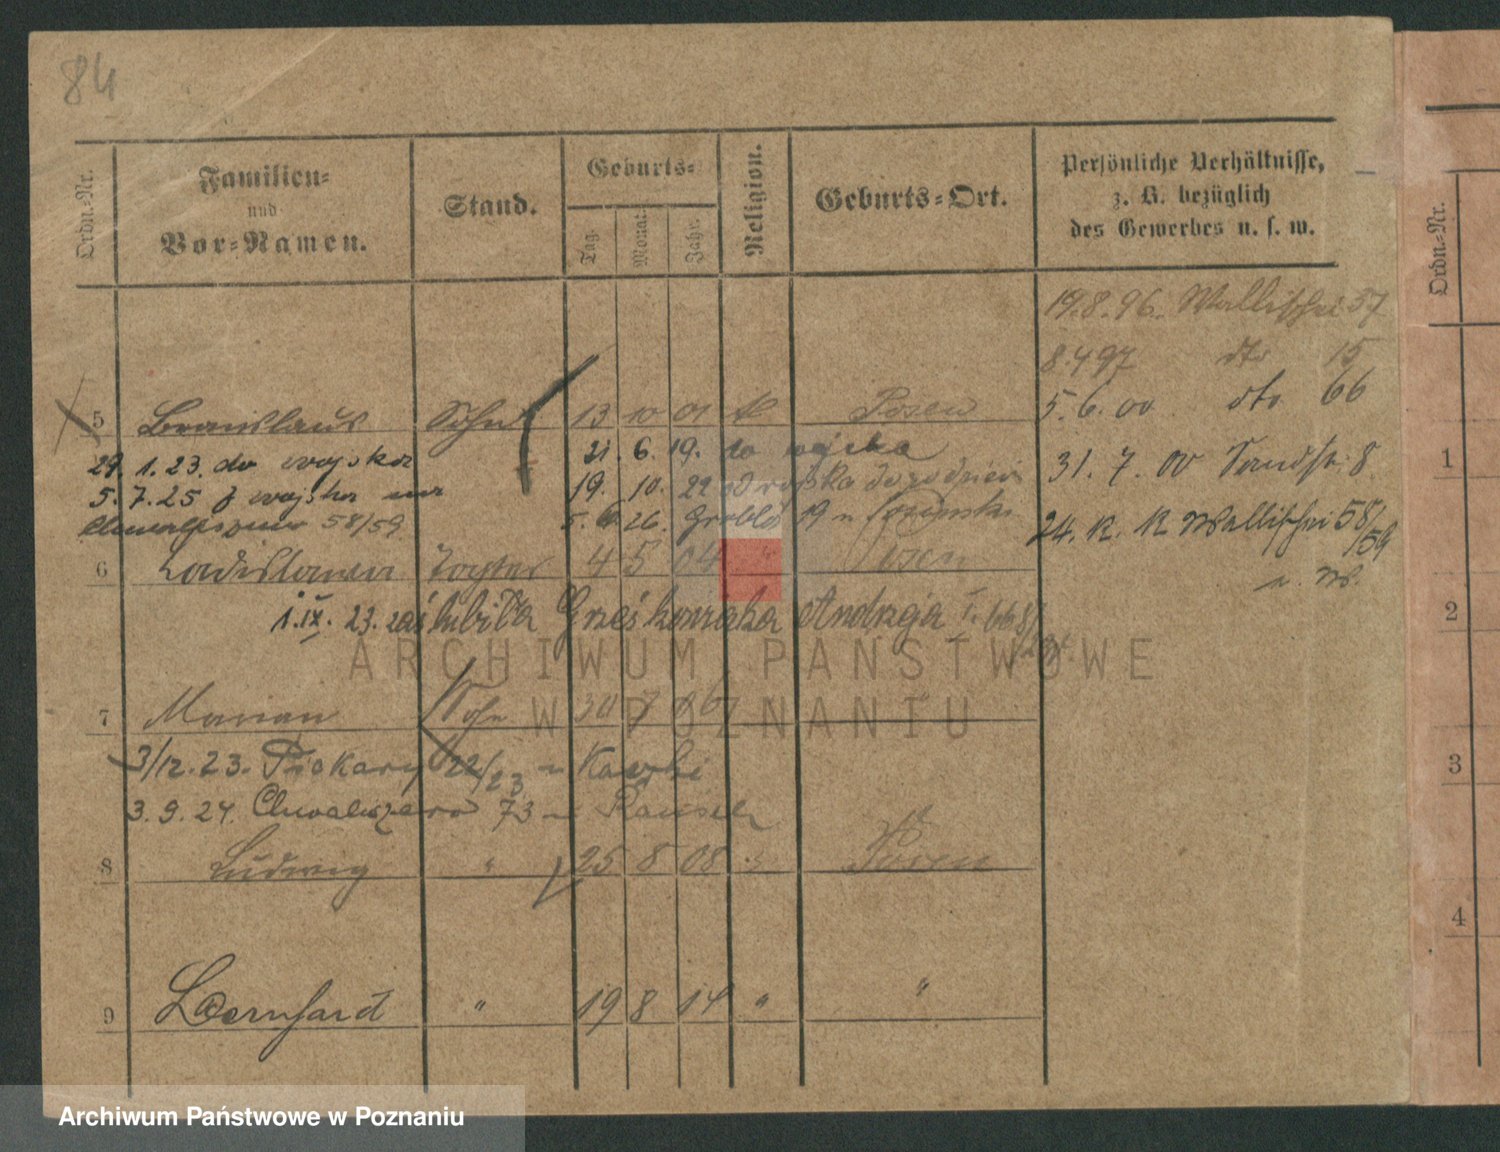 84
Ordn.-Nr.
Familien-
und
Vor-Namen.
Stand.
Geburts-
Tag.
Monat.
Jahr.
Religion.
Geburts-Ort.
Persönliche Verhältnisse,
z. B. bezüglich
des Gewerbes u. s. w.
19.8.96. Wallischei 37
8.4 97 dto 15
5.6.00 dto 66
5 Bronislaus Sohn 13 10 01 k Posen
29.1.23. do wojska 21. 6. 19. do wojska
31. 7. 00 8.
5.7.25 z wojska 19. 10. 22
Chwaliszewo 58/59 5. 6. 26. Grobla 19 u
24. 12. 12 Wallischei 58/59
6 Ladislawa Tochter 4 5 04 " Posen
1. IX. 23. zaślubiła Andrzeja
7 Marian Sohn 30 7 06
3/12.23. Piekary 22/23
3.9.24. Chwaliszewo 73
8 Ludwig " 25 8 08 Posen
9 Bernhard " 19 8 14 " "
Ordn.-Nr.
1
2
3
4
ARCHIWUM PAŃSTWOWE
W POZNANIU
Archiwum Państwowe w Poznaniu